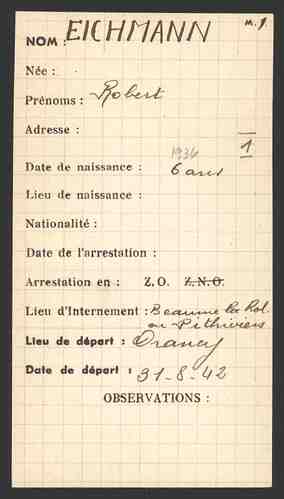 M. 1.
NOM : EICHMANN
Née :
Prénoms : Robert
Adresse :
1
1934
Date de naissance : 6 ans
Lieu de naissance :
Nationalité :
Date de l'arrestation :
Arrestation en : Z.O. Z.N.O.
Lieu d'Internement : Beaune la Rol.
ou Pithiviers
Lieu de départ : Drancy
Date de départ : 31-8-42
OBSERVATIONS :